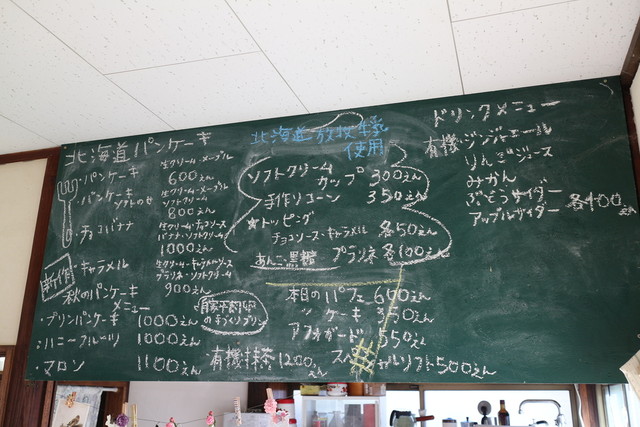 北海道パンケーキ
・パンケーキ
生クリーム・メープル
600えん
・パンケーキ
ソフトのせ
生クリーム・メープル
ソフトクリーム
800えん
・チョコバナナ
生クリーム・チョコソース
バナナ・ソフトクリーム
1000えん
新作
・キャラメル
生クリーム・キャラメルソース
プラリネ・ソフトクリーム
900えん
秋のパンケーキ
メニュー
・プリンパンケーキ 1000えん
・ハニーフルーツ 1000えん
・マロン 1100えん
北海道放牧牛乳
使用
ソフトクリーム
カップ 300えん
手作りコーン 350えん
★トッピング
チョコソース・キャラメル 各50えん
あんこ、黒糖 プラリネ 各100えん
の手づくりプリン
本日のパフェ 600えん
〃 ケーキ 350えん
アフォガード 550えん
有機抹茶 1200えん
スペシャルソフト 500えん
ドリンクメニュー
有機ジンジャエール
りんごジュース
みかん
ぶどうサイダー
アップルサイダー 各400えん